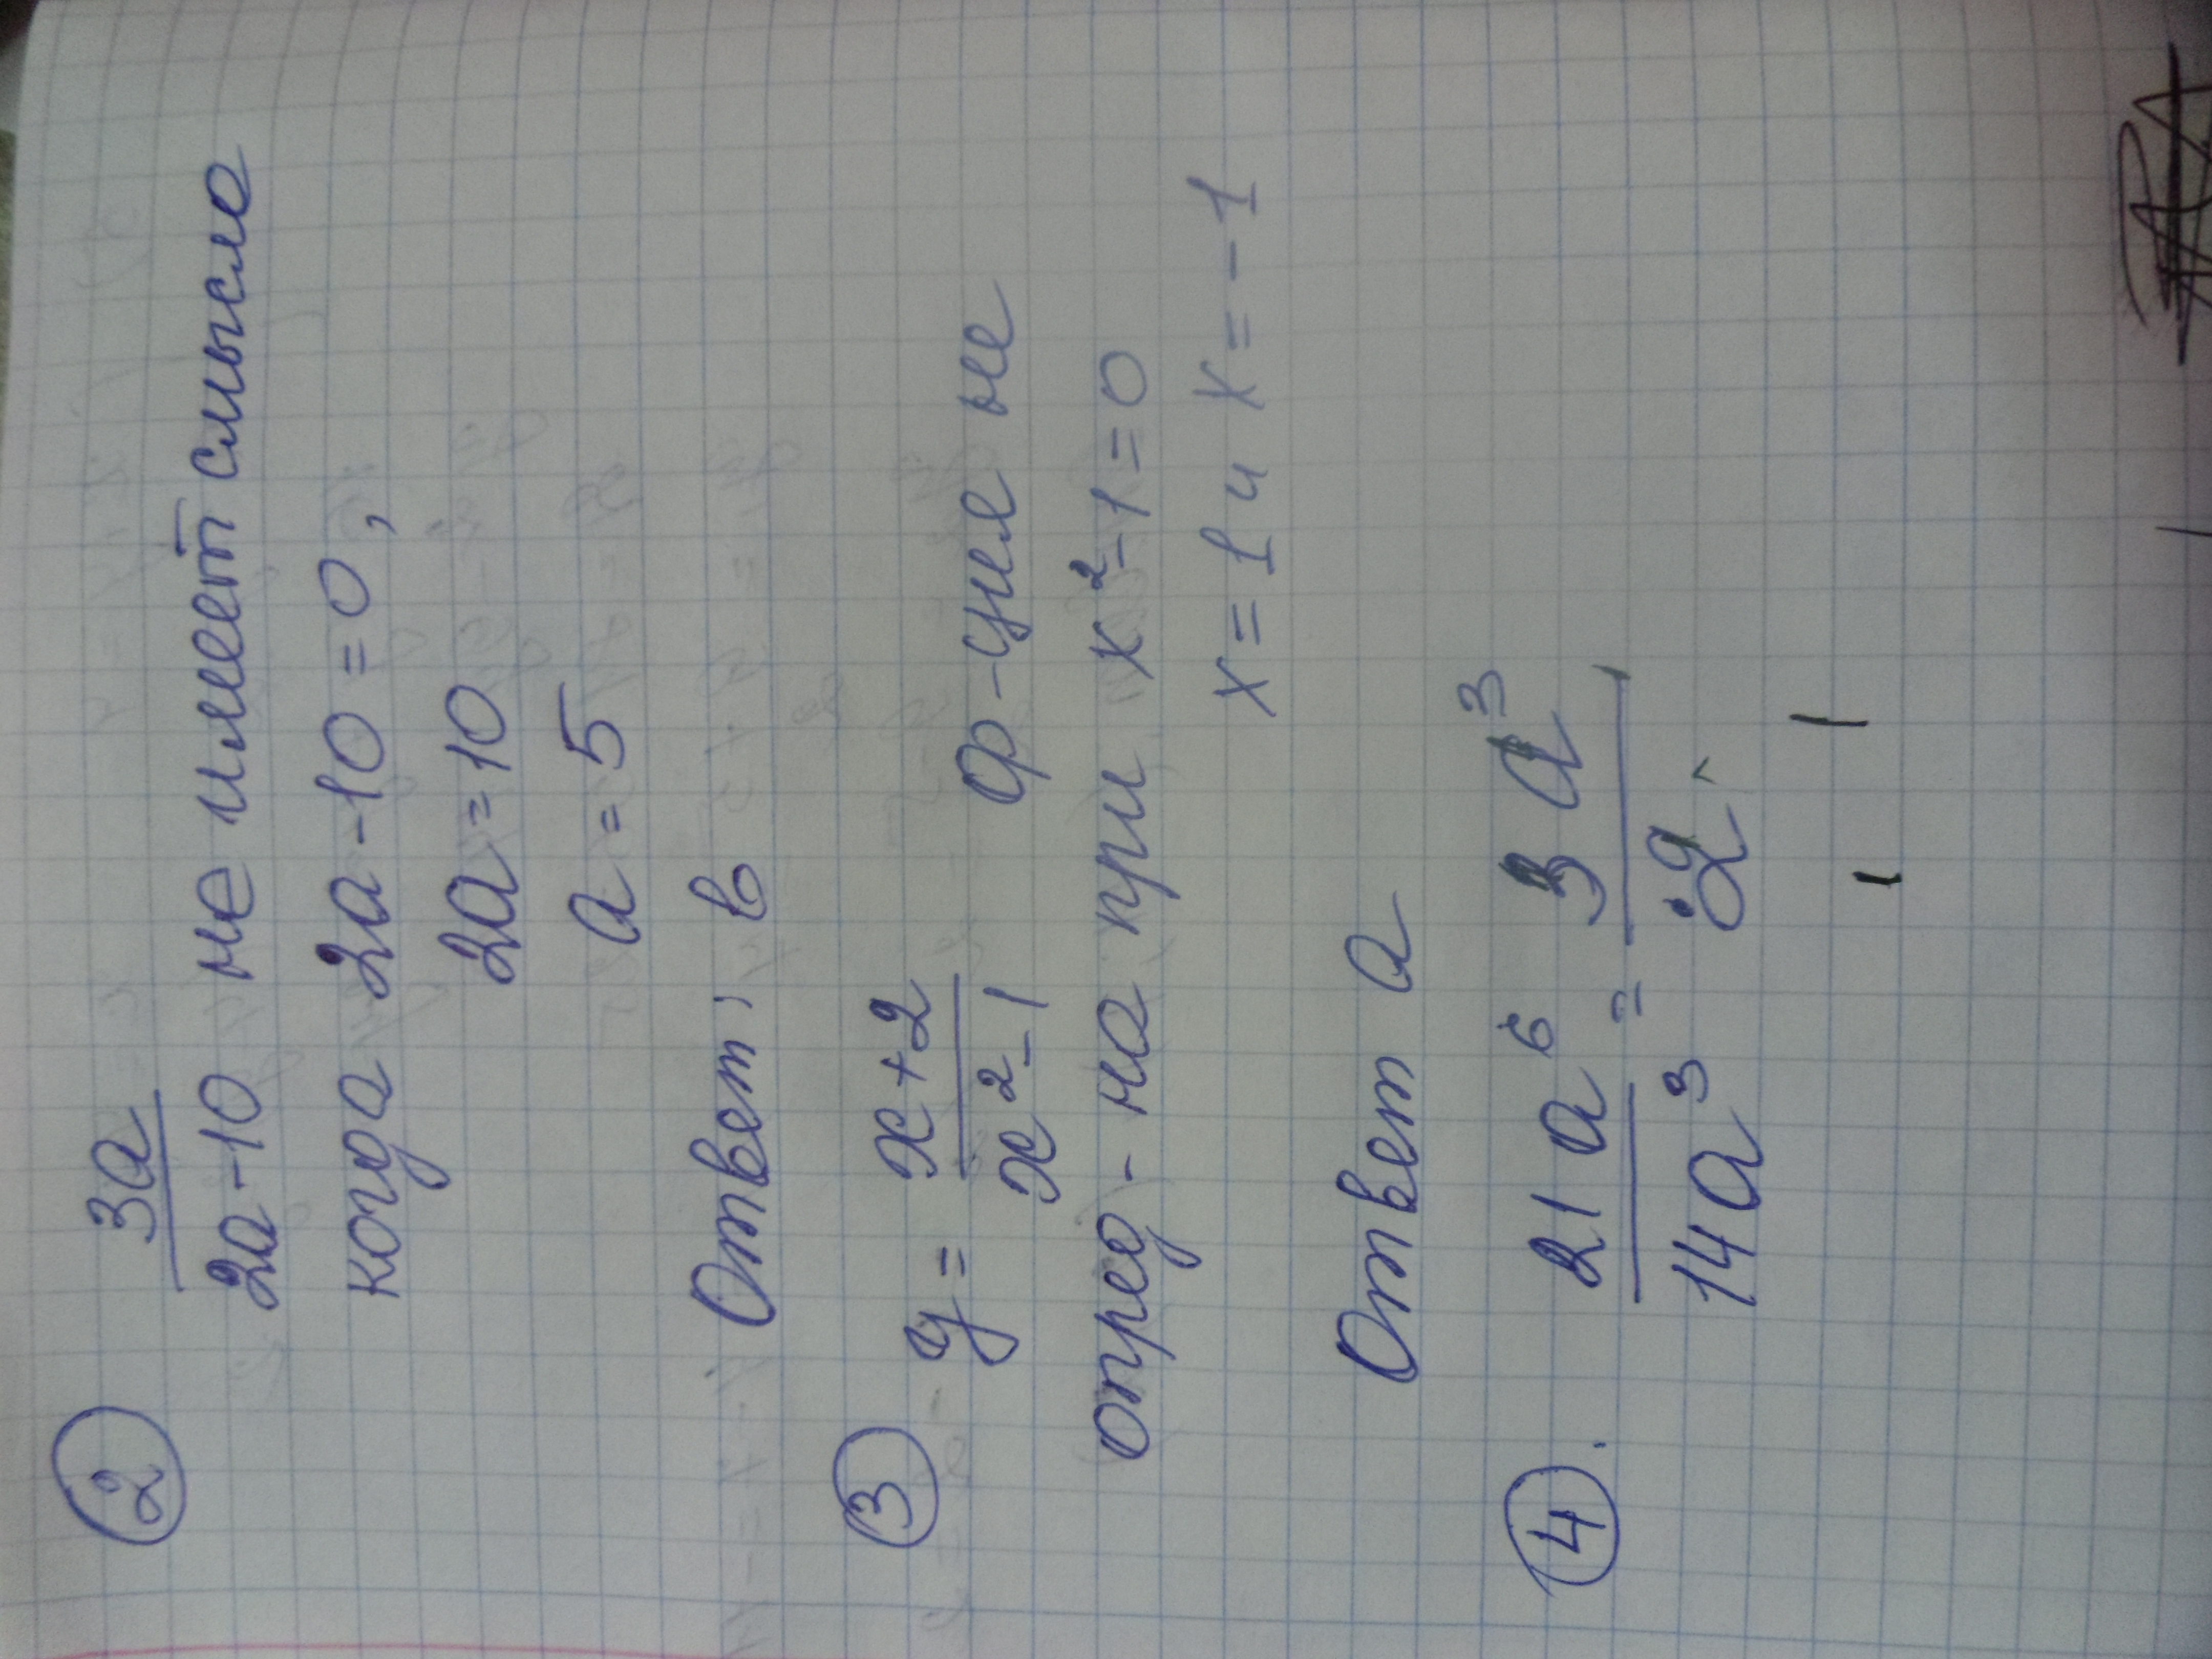 ② 3a
2a-10 не имеет смысла
когда 2a-10=0,
2a=10
a=5
Ответ: в
③ y = x+2
x²-1 ф-ция не
опред-на при x²-1=0
x=1 и x=-1
Ответ а
④. 21a⁶ = 3a³
14a³ 2